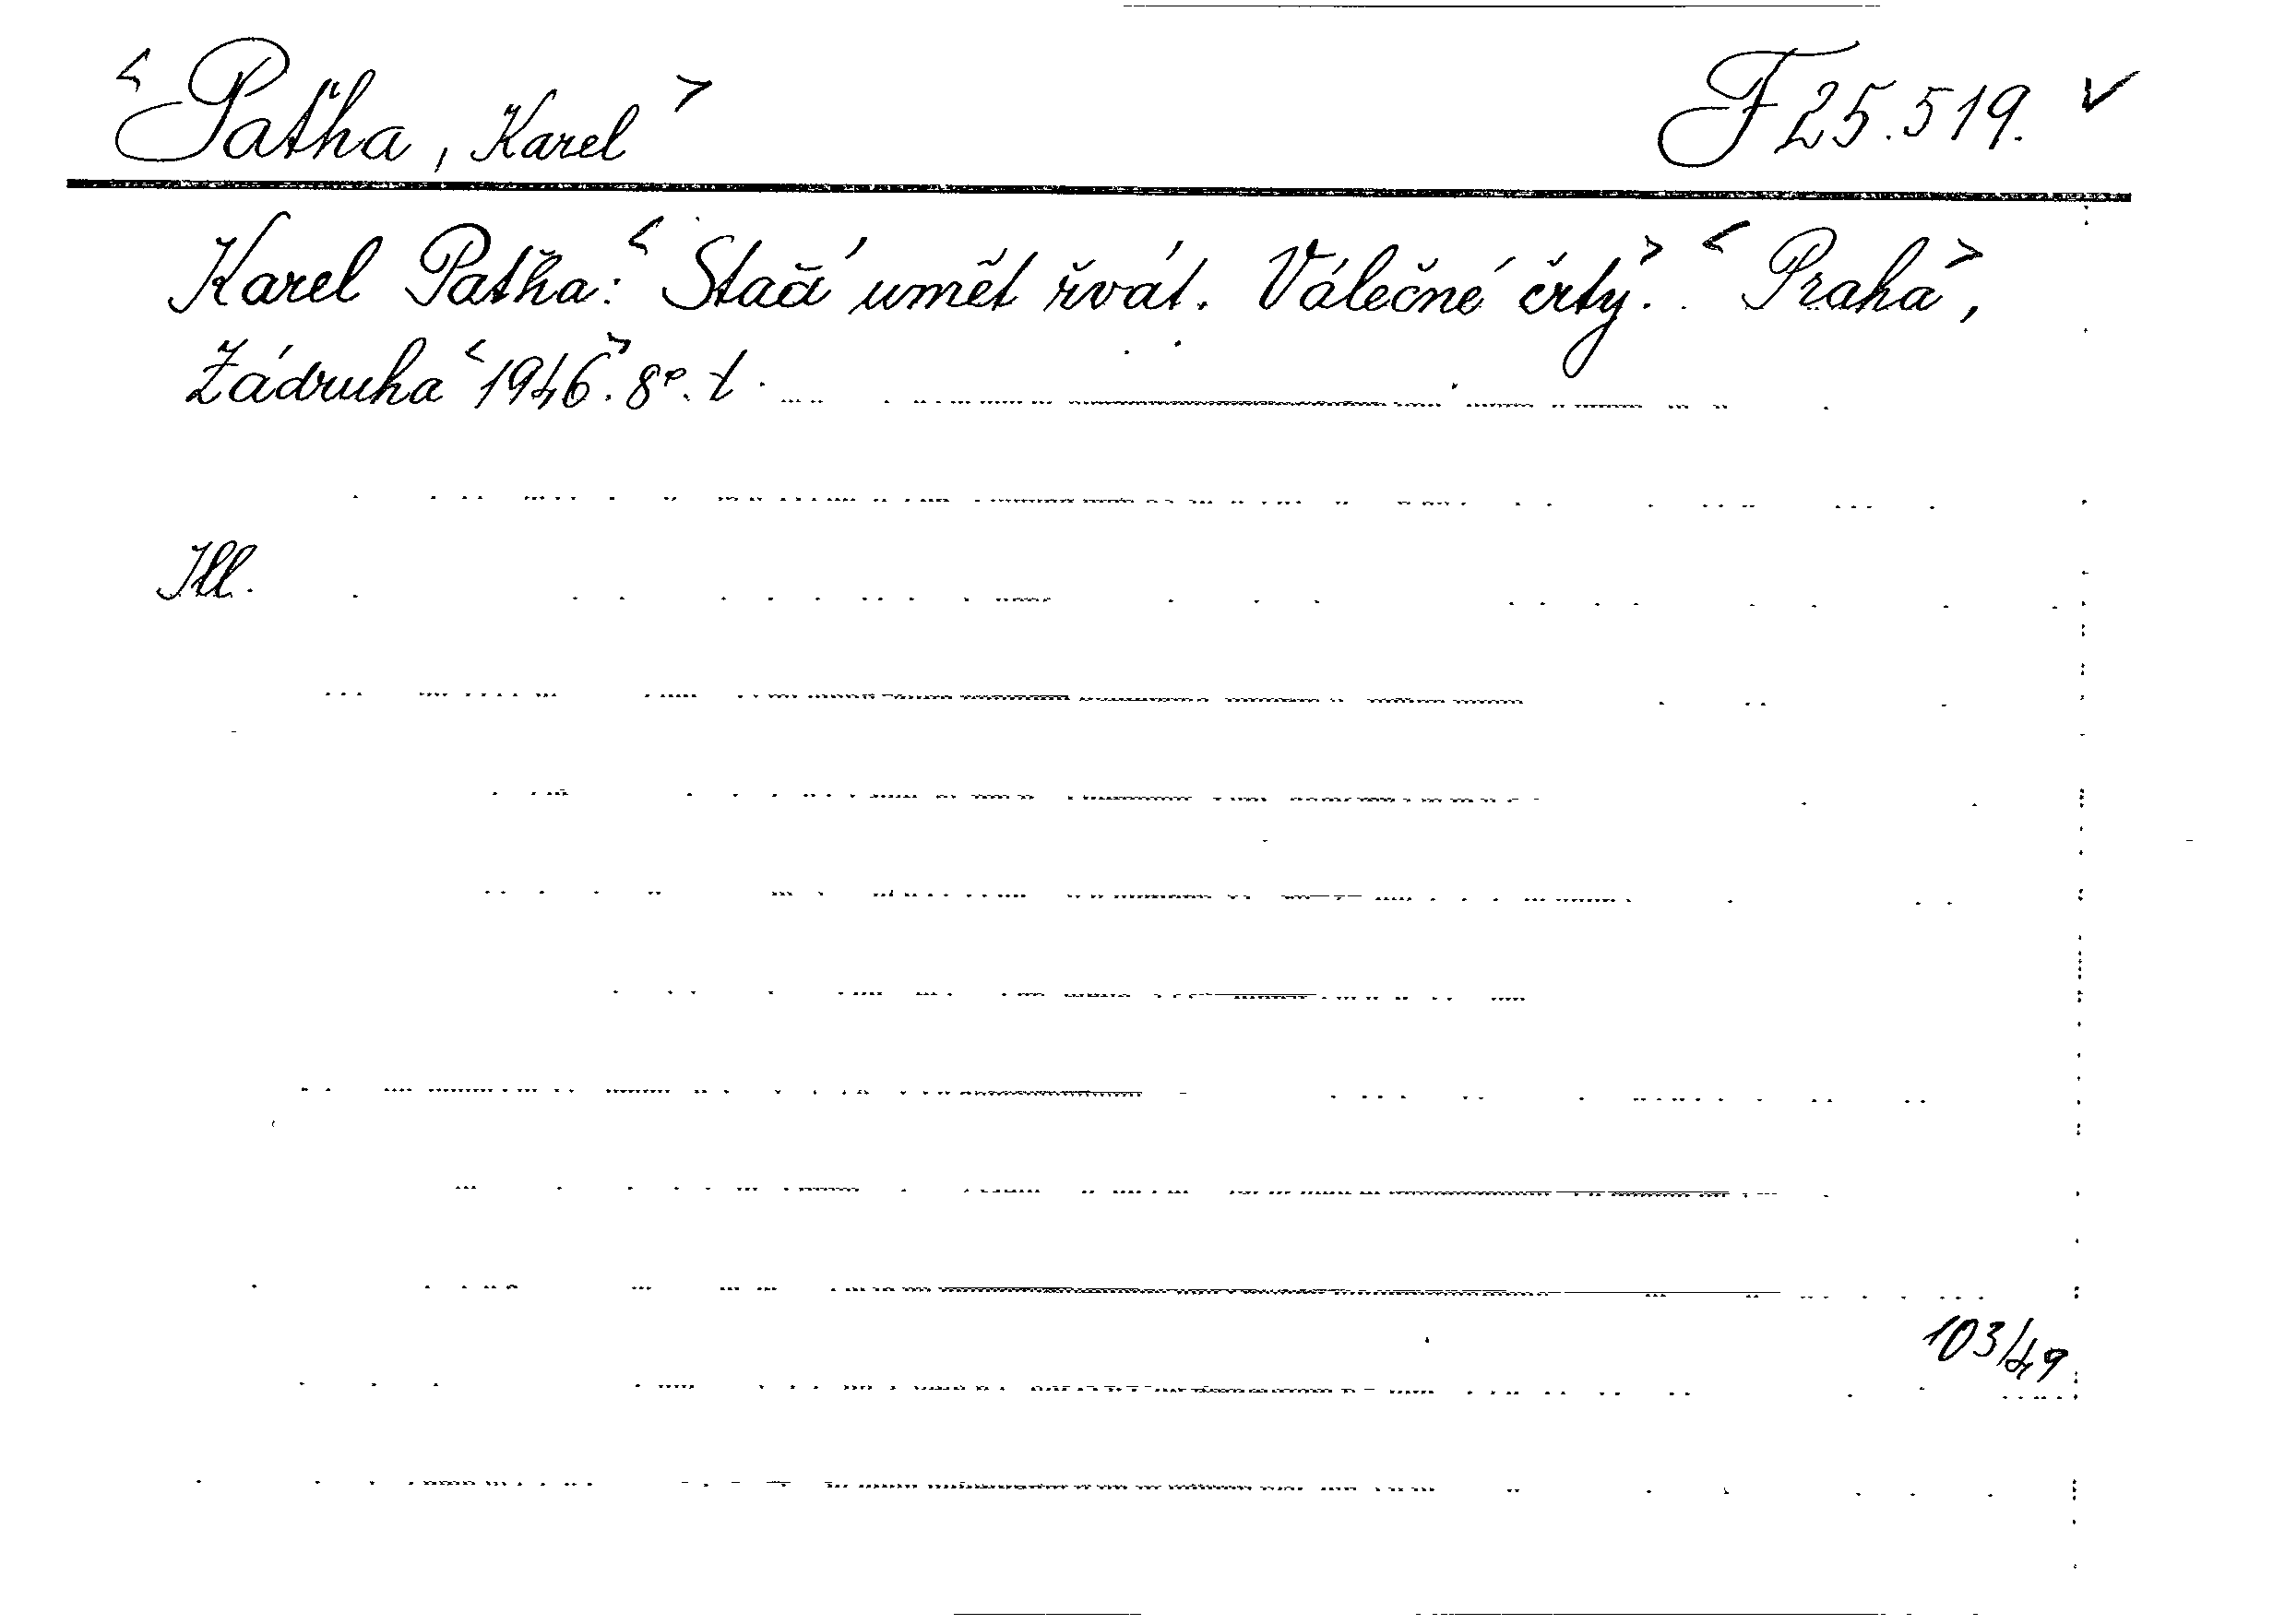 <Paťha, Karel> F 25.519. ✓
Karel Paťha: <Stačí umět řvát. Válečné črty>. <Praha>,
Zádruha <1946>. 8°. t.
Ill.
103/49